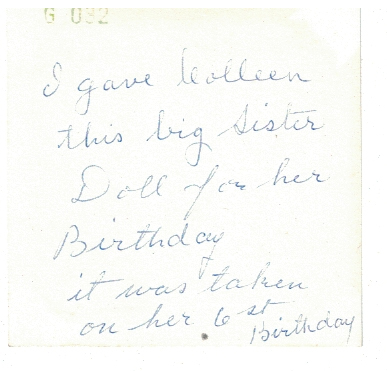 G 032
I gave Kolleen
this big Sister
Doll for her
Birthday
it was taken
on her 6 st
Birthday